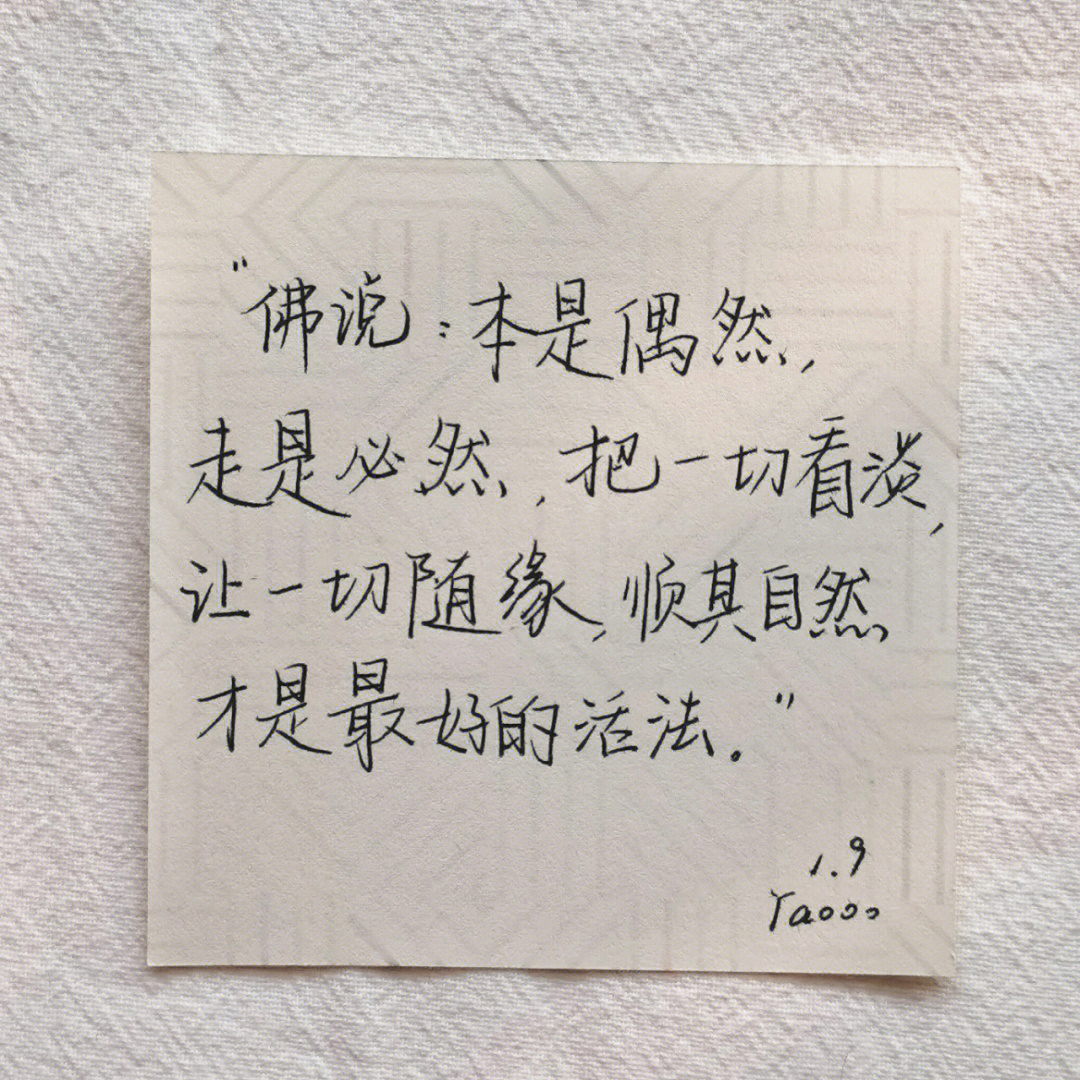 "佛说:本是偶然,
走是必然,把一切看淡,
让一切随缘,顺其自然
才是最好的活法。"
1.9
Yaooo